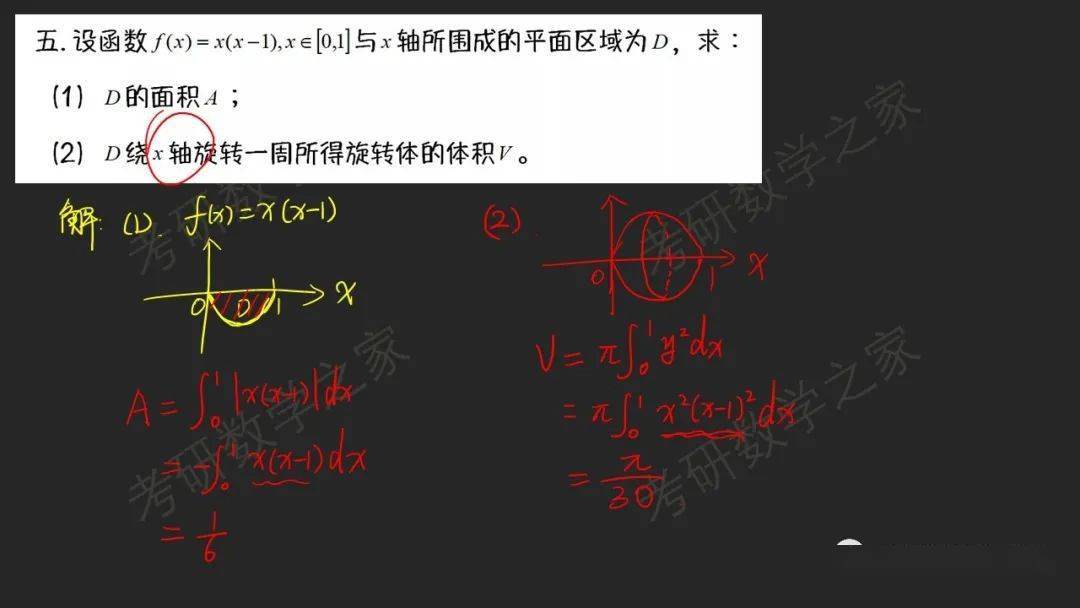 五. 设函数 f(x) = x(x-1), x∈[0,1] 与 x 轴所围成的平面区域为 D，求：
(1) D 的面积 A；
(2) D 绕 x 轴旋转一周所得旋转体的体积 V。
解: (1). f(x) = x(x-1)
0 D 1 x
A = ∫₀¹ |x(x-1)| dx
= -∫₀¹ x(x-1) dx
= 1/6
(2).
0 1 x
V = π∫₀¹ y² dx
= π∫₀¹ x²(x-1)² dx
= π/30
考研数学之家
考研数学之家
考研数学之家
考研数学之家